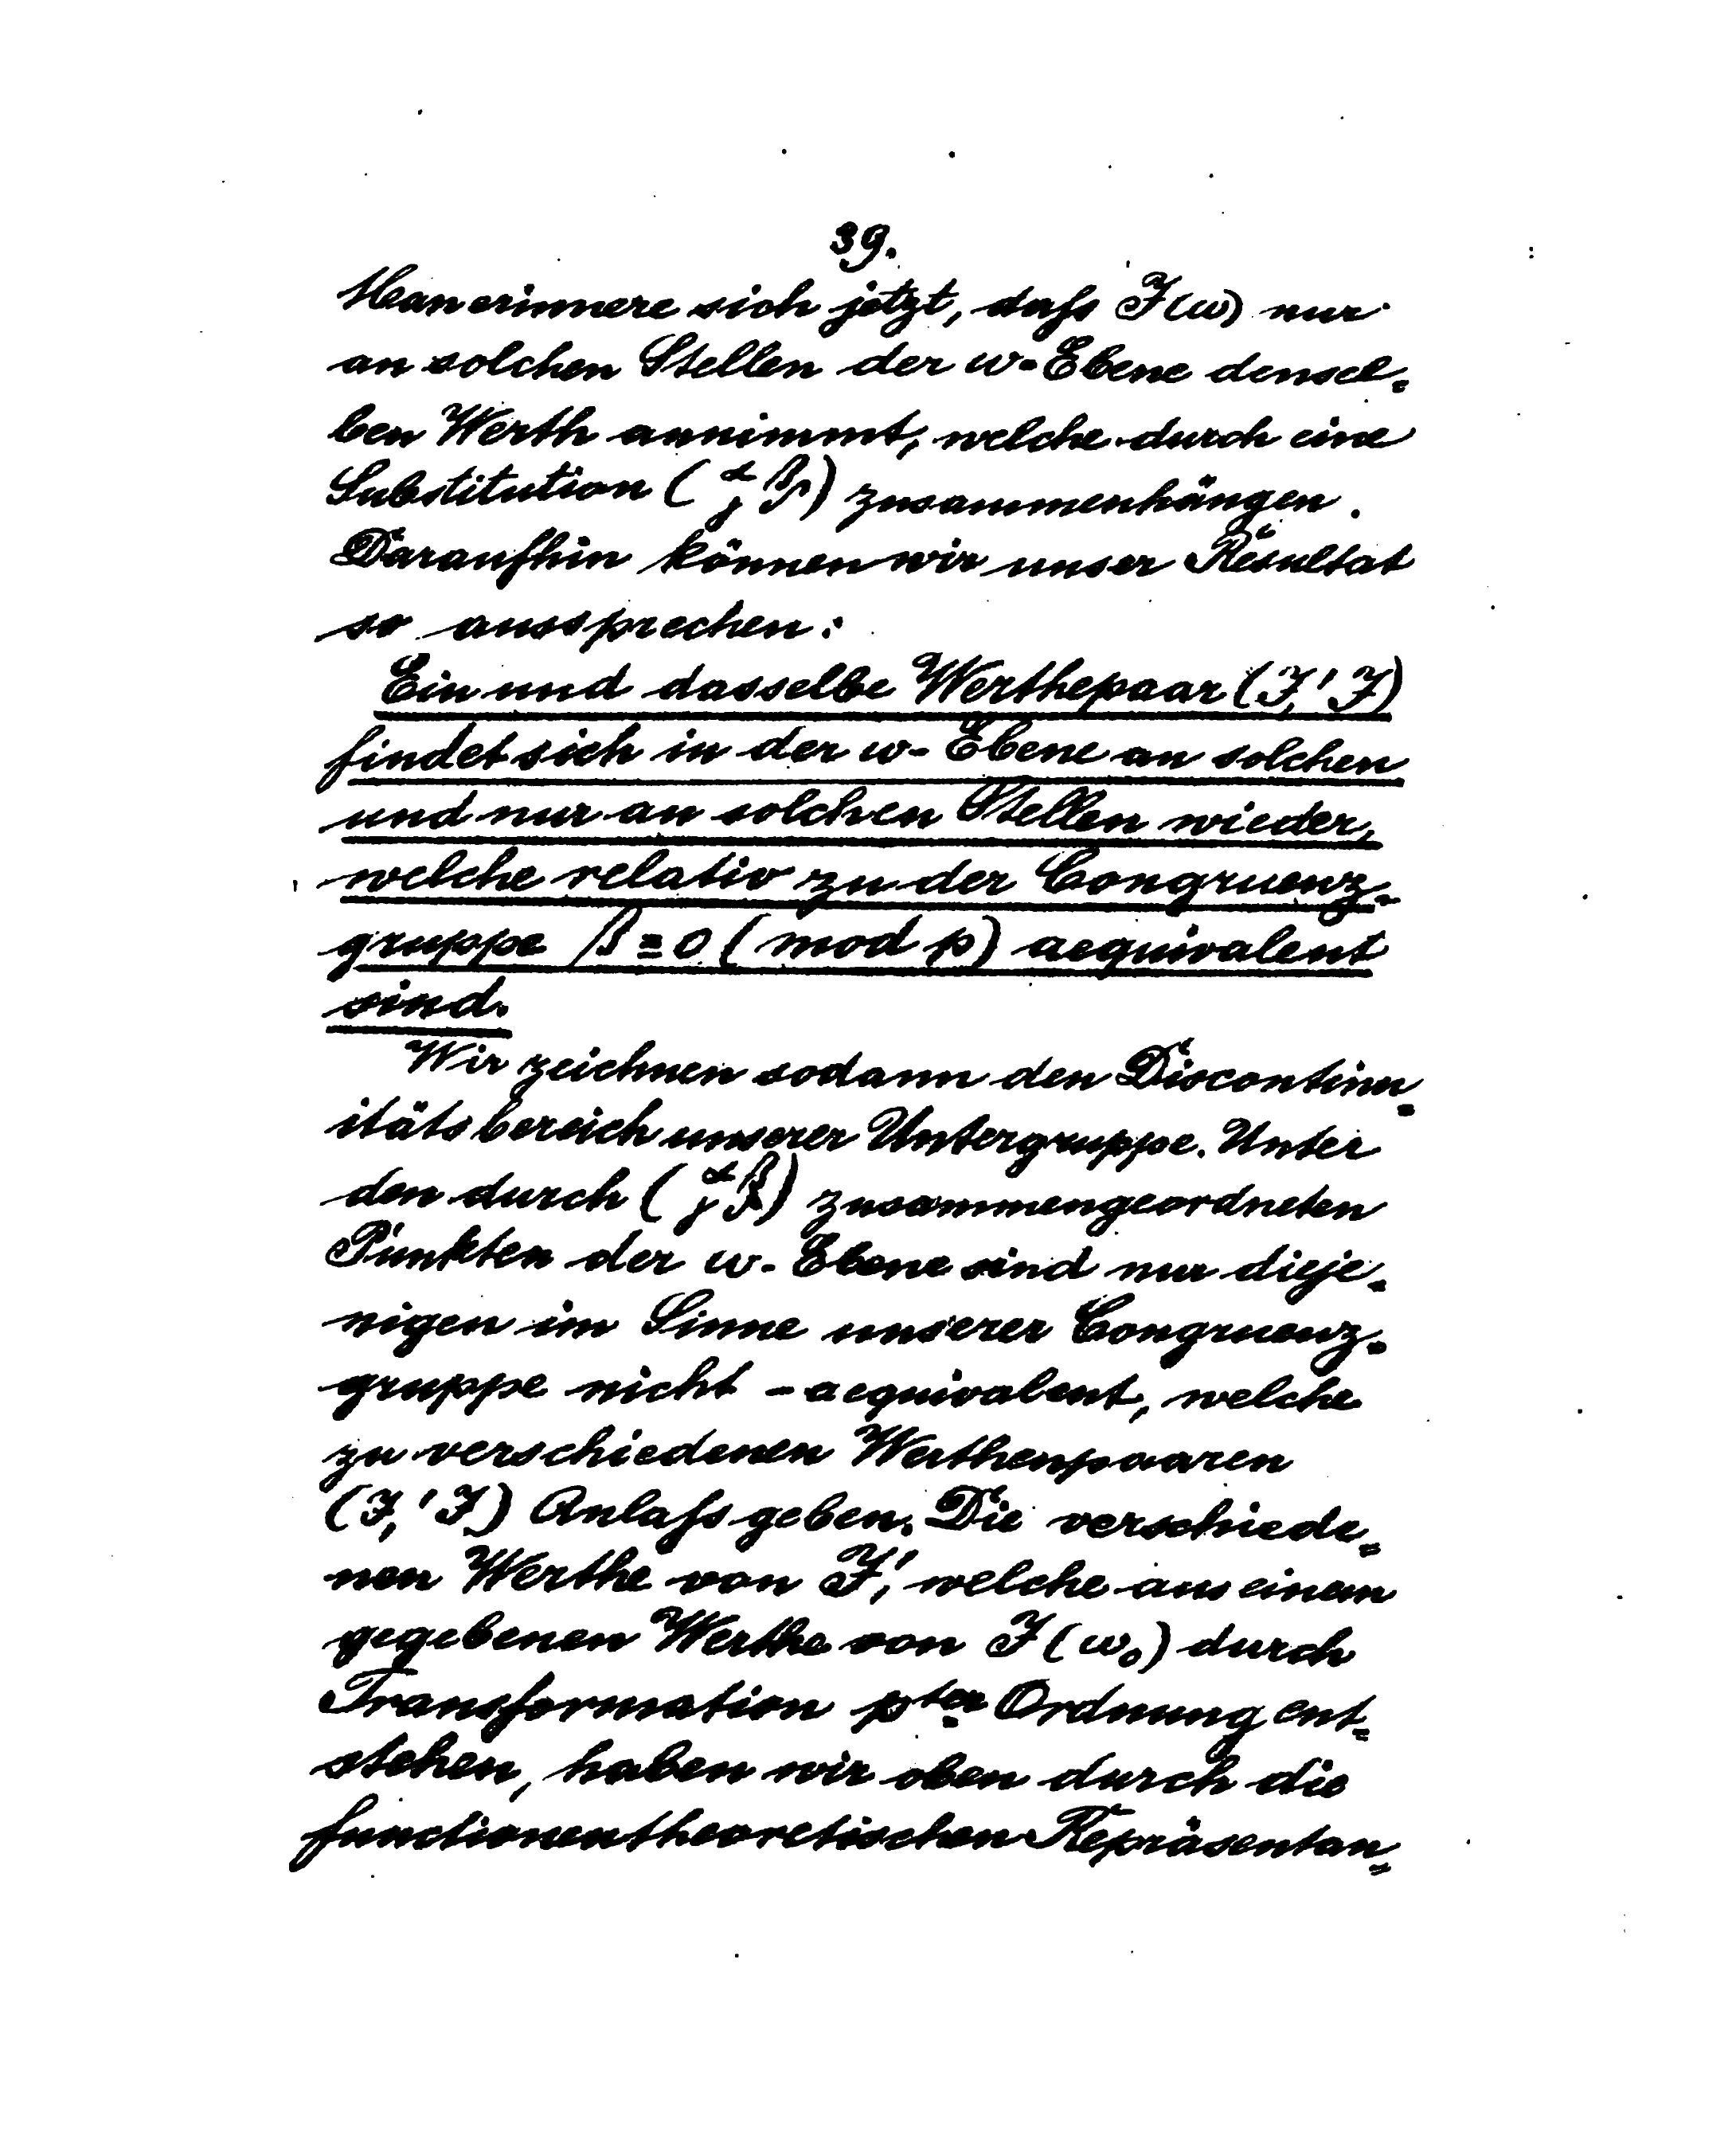 39.
Man erinnere sich jetzt, daſs J(ω) nur
an solchen Stellen der ω-Ebene densel-
ben Werth annimmt, welche durch eine
Substitution (α β γ δ) zusammenhängen.
Daraufhin können wir unser Resultat
so aussprechen:
Ein und dasselbe Werthepaar (J,' J)
findet sich in der ω-Ebene an solchen
und nur an solchen Stellen wieder,
welche relativ zu der Congruenz-
gruppe β ≡ 0 (mod p) aequivalent
sind.
Wir zeichnen sodann den Discontinu-
itätsbereich unserer Untergruppe. Unter
den durch (α β γ δ) zusammengeordneten
Punkten der ω-Ebene sind nur dieje-
nigen im Sinne unserer Congruenz-
gruppe nicht-aequivalent, welche
zu verschiedenen Werthenpaaren
(J,' J) Anlaſs geben. Die verschiede-
nen Werthe von J,' welche aus einem
gegebenen Werthe von J(ω₀) durch
Transformation pter Ordnung ent-
stehen, haben wir oben durch die
functionentheoretischen Repräsentan-